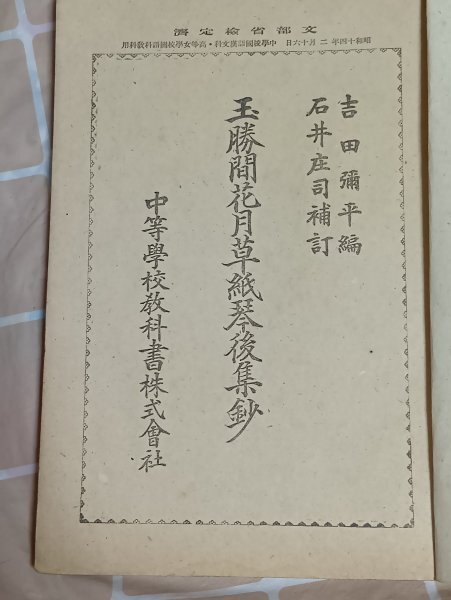 文部省檢定濟
昭和十四年二月十六日 中學校國語漢文科・高等女學校國語科敎科用
吉田彌平編
石井庄司補訂
玉勝間花月草紙琴後集鈔
中等學校敎科書株式會社